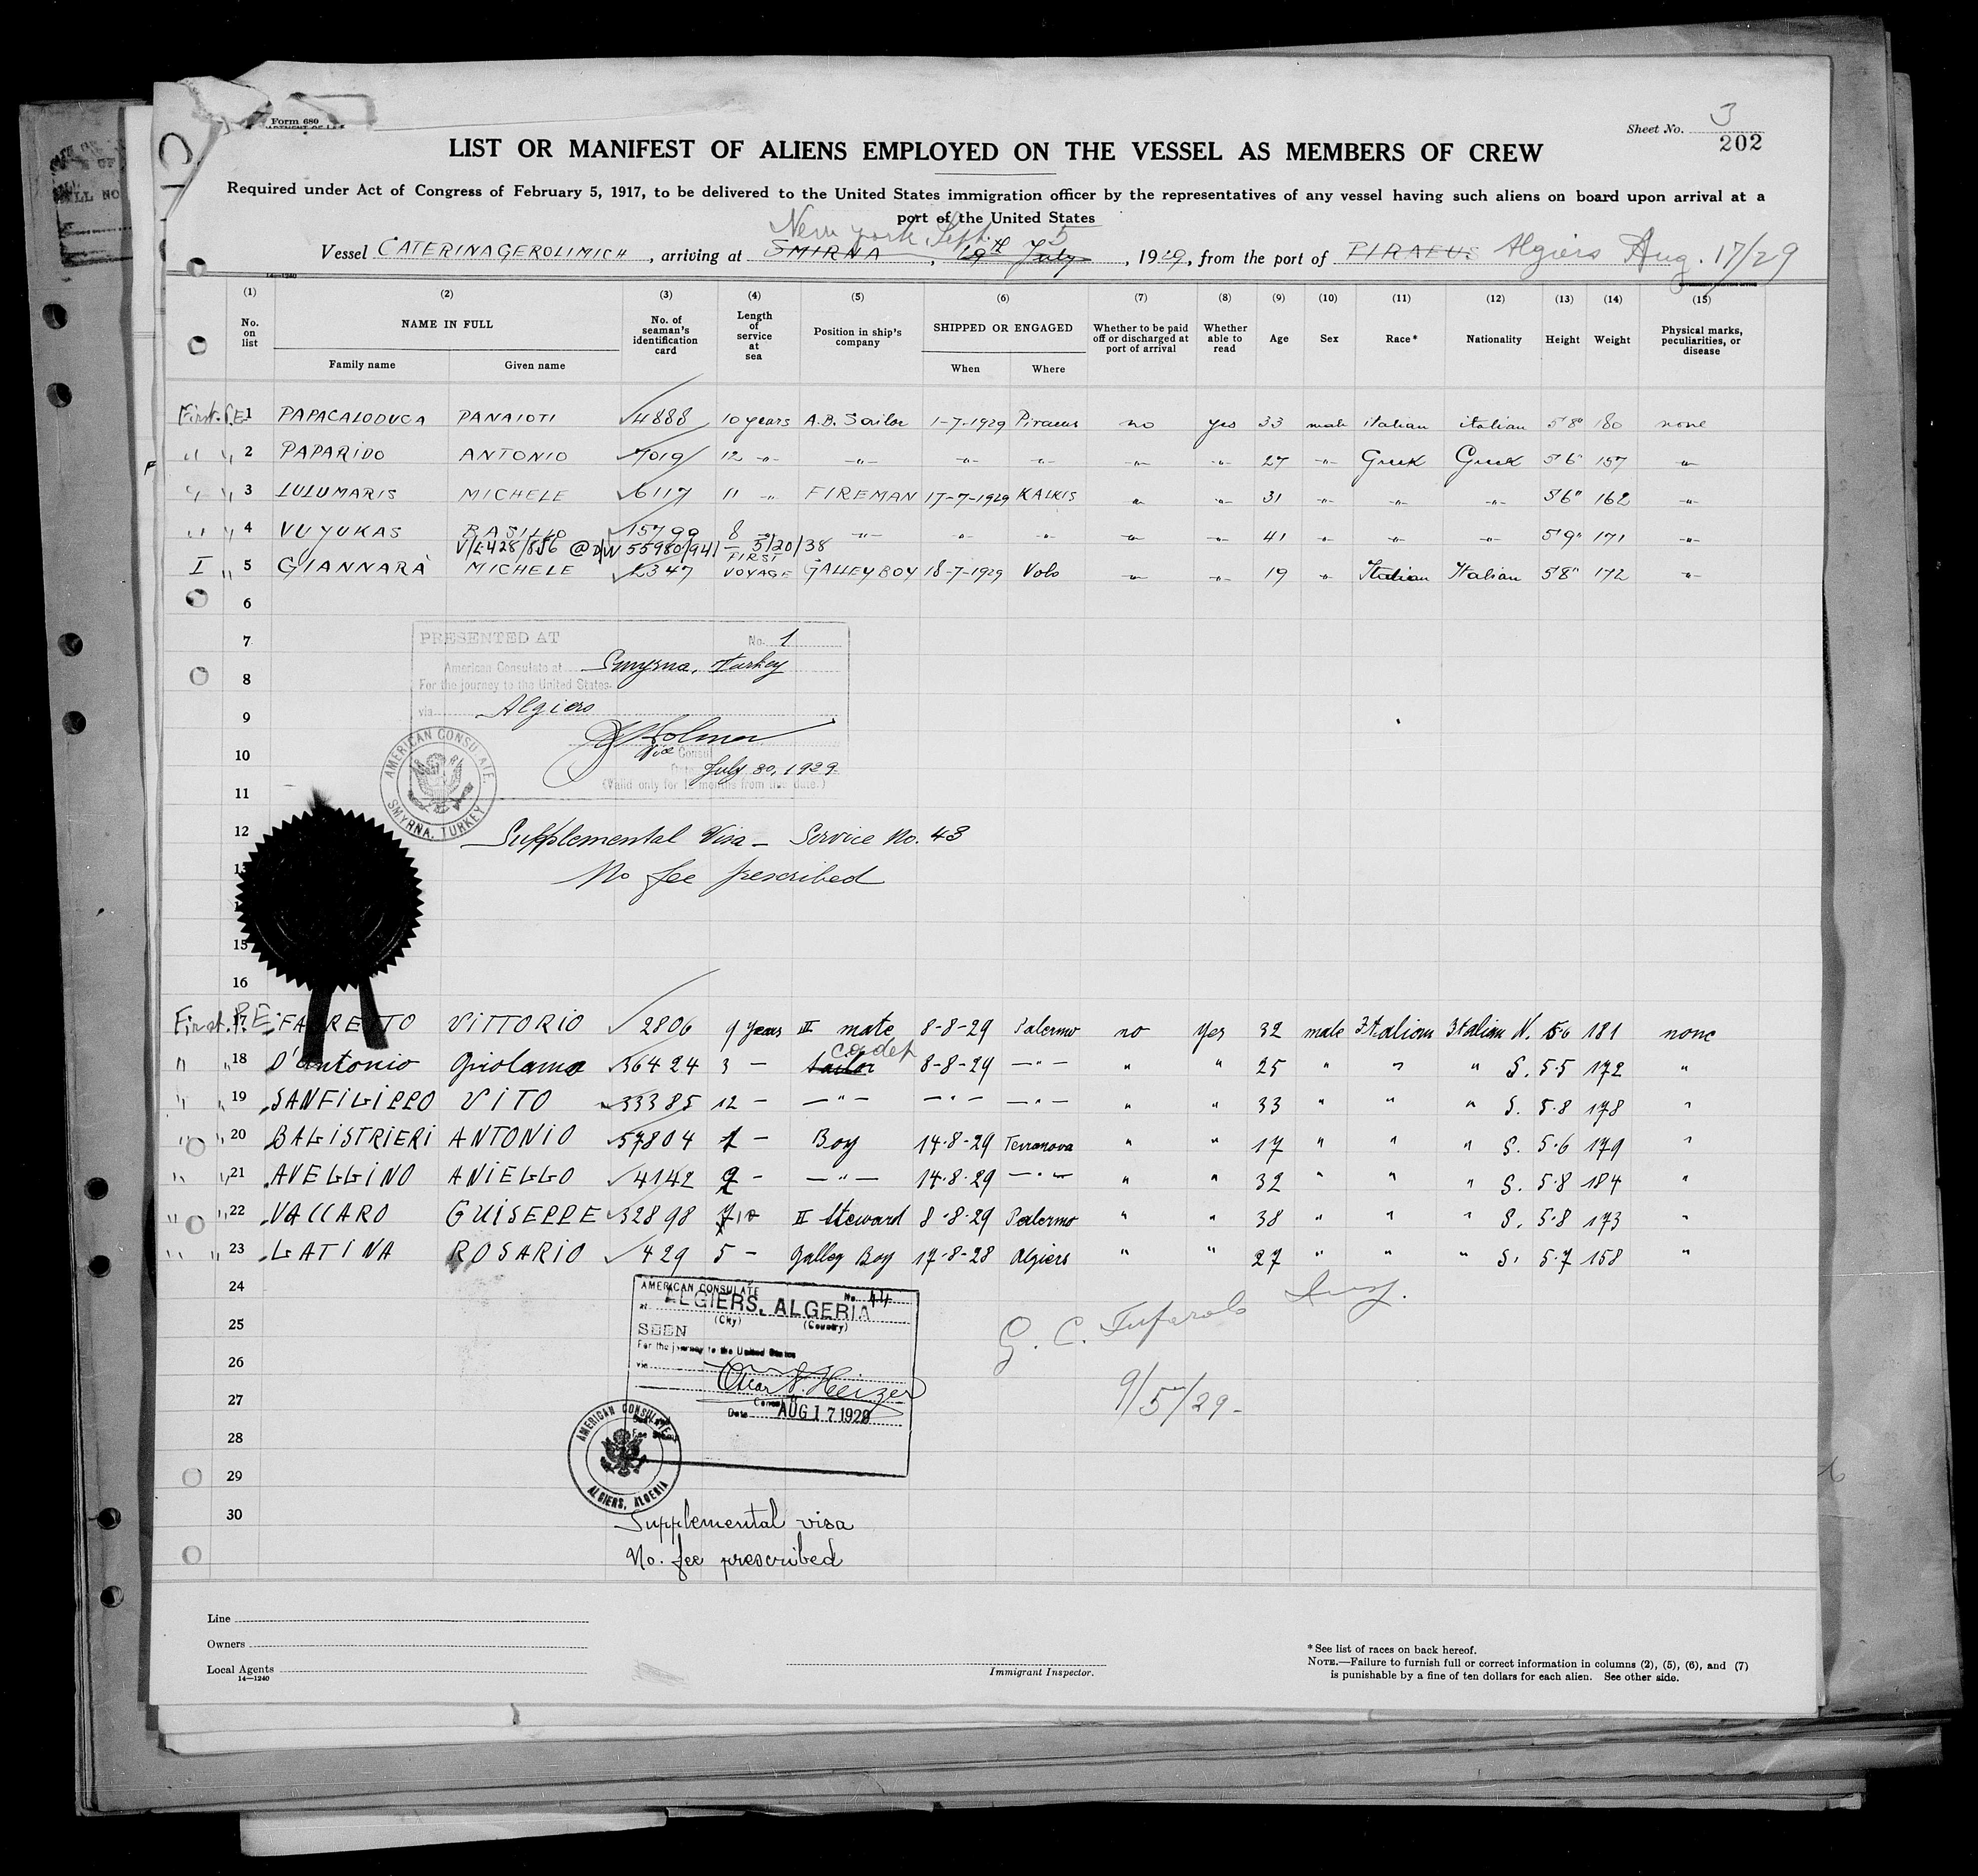 Form 680
Sheet No. 3
202
LIST OR MANIFEST OF ALIENS EMPLOYED ON THE VESSEL AS MEMBERS OF CREW
Required under Act of Congress of February 5, 1917, to be delivered to the United States immigration officer by the representatives of any vessel having such aliens on board upon arrival at a
port of the United States
New York, Sept. 5
Vessel CATERINAGEROLIMICH, arriving at SMIRNA, 19th July, 1929, from the port of PIRAEUS Algiers Aug. 17/29
14-1240
(1) (2) (3) (4) (5) (6) (7) (8) (9) (10) (11) (12) (13) (14) (15)
No. on list NAME IN FULL No. of seaman's identification card Length of service at sea Position in ship's company SHIPPED OR ENGAGED Whether to be paid off or discharged at port of arrival Whether able to read Age Sex Race* Nationality Height Weight Physical marks, peculiarities, or disease
Family name Given name When Where
First. P.E. 1 PAPACALODUCA PANAIOTI 4888 10 years A.B. Sailor 1-7-1929 Piraeus no yes 33 male italian italian 5'8" 180 none
" " 2 PAPARIDO ANTONIO 7019 12 -"- -"- -"- -"- -"- -"- 27 -"- Greek Greek 5'6 157 -"-
" " 3 LULUMARIS MICHELE 6117 11 " FIREMAN 17-7-1929 KALKIS " -"- 31 -"- -"- -"- 5'6" 162 -"-
" " 4 VUYUKAS BASILIO 15799 8 -"- -"- -"- -"- -"- -"- 41 -"- -"- -"- 5'9" 171 -"-
V/L428/856 @ D/W 55980/941 - 5/20/38
I " 5 GIANNARA MICHELE 2347 FIRST VOYAGE GALLEY BOY 18-7-1929 Volo -"- -"- 19 -"- Italian Italian 5'8" 172 -"-
6
7
8
9
10
11
12
PRESENTED AT No. 1
American Consulate at Smyrna, Turkey
For the journey to the United States.
via Algiers
Vice Consul
July 30, 1929
(Valid only for 12 months from this date.)
AMERICAN CONSULATE
SMYRNA, TURKEY
Supplemental Visa - Service No. 43
No fee prescribed
15
16
First. P.E. 17 VITTORIO 2806 9 years III mate 8-8-29 Palermo no yes 32 male Italian Italian N. 5.6 181 none
" " 18 D'Antonio Girolamo 36424 3 - sailor cadet 8-8-29 -"- " " 25 " " " S. 5.5 172 "
" " 19 SANFILIPPO VITO 33385 12 - -"- -"- -"- " " 33 " " " S. 5.8 178 "
" " 20 BALISTRIERI ANTONIO 57804 1 - Boy 14-8-29 Terranova " " 17 " " " S. 5.6 179 "
" " 21 AVELLINO ANIELLO 4142 2 - -"- 14-8-29 -"- " " 32 " " " S. 5.8 184 "
" " 22 VACCARO GUISEPPE 32898 10 II Steward 8-8-29 Palermo " " 38 " " " S. 5.8 173 "
" " 23 LATINA ROSARIO 429 5 - Galley Boy 17-8-28 Algiers " " 27 " " " S. 5.7 158 "
24
25
26
27
28
29
30
AMERICAN CONSULATE No. 44
at ALGIERS, ALGERIA
(City) (Country)
SEEN
For the journey to the United States
via
Oscar S. Heizer
Consul
Date AUG 17 1929
AMERICAN CONSULATE
ALGIERS, ALGERIA
G. C. Insp.
9/5/29-
Supplemental visa
No. fee prescribed
Line
Owners
Local Agents
14-1240
Immigrant Inspector.
* See list of races on back hereof.
NOTE.—Failure to furnish full or correct information in columns (2), (5), (6), and (7)
is punishable by a fine of ten dollars for each alien. See other side.